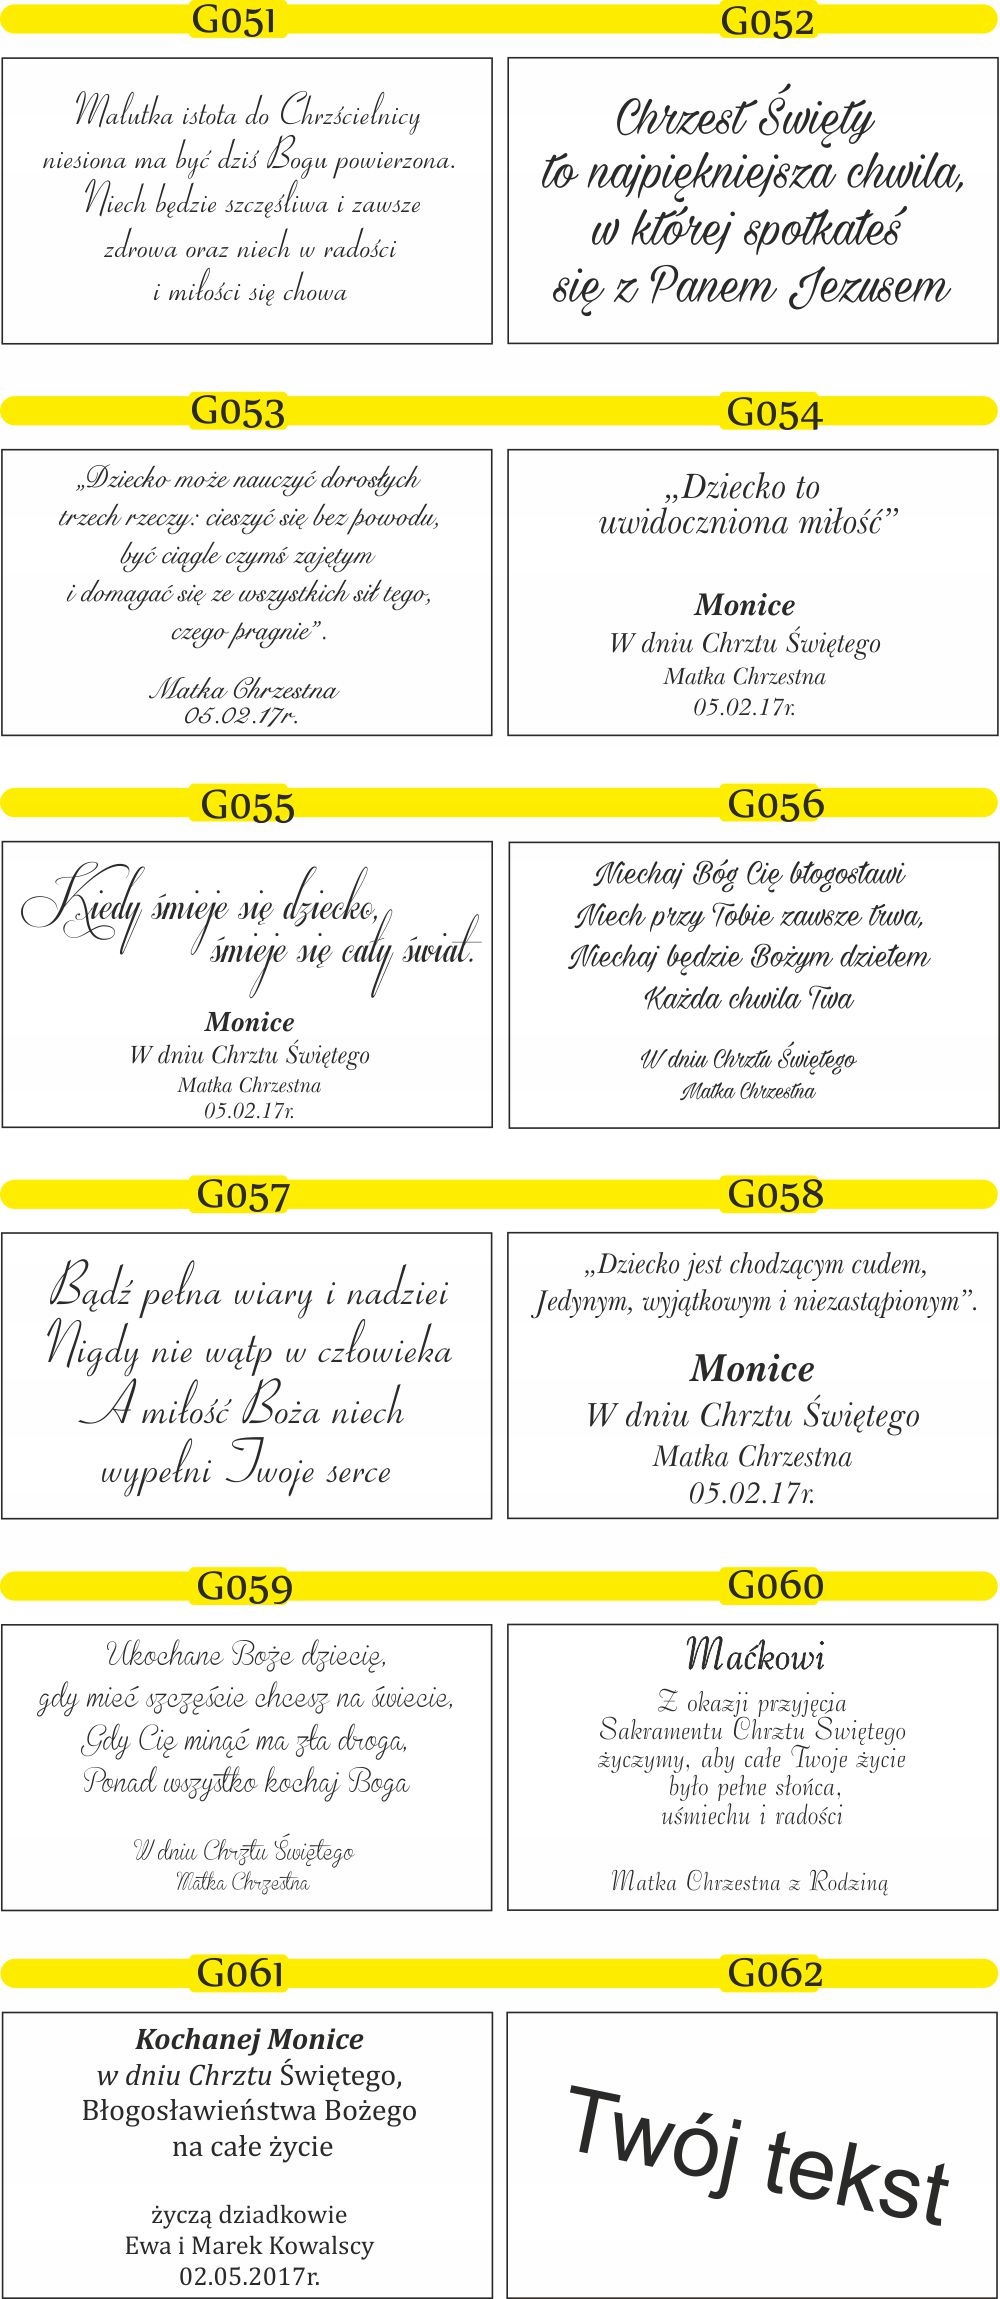 G051
Malutka istota do Chrzścielnicy
niesiona ma być dziś Bogu powierzona.
Niech będzie szczęśliwa i zawsze
zdrowa oraz niech w radości
i miłości się chowa
G052
Chrzest Święty
to najpiękniejsza chwila,
w której spotkałeś
się z Panem Jezusem
G053
„Dziecko może nauczyć dorosłych
trzech rzeczy: cieszyć się bez powodu,
być ciągle czymś zajętym
i domagać się ze wszystkich sił tego,
czego pragnie”.
Matka Chrzestna
05.02.17r.
G054
„Dziecko to
uwidoczniona miłość”
Monice
W dniu Chrztu Świętego
Matka Chrzestna
05.02.17r.
G055
Kiedy śmieje się dziecko,
śmieje się cały świat.
Monice
W dniu Chrztu Świętego
Matka Chrzestna
05.02.17r.
G056
Niechaj Bóg Cię błogosławi
Niech przy Tobie zawsze trwa,
Niechaj będzie Bożym dziełem
Każda chwila Twa
W dniu Chrztu Świętego
Matka Chrzestna
G057
Bądź pełna wiary i nadziei
Nigdy nie wątp w człowieka
A miłość Boża niech
wypełni Twoje serce
G058
„Dziecko jest chodzącym cudem,
Jedynym, wyjątkowym i niezastąpionym”.
Monice
W dniu Chrztu Świętego
Matka Chrzestna
05.02.17r.
G059
Ukochane Boże dziecię,
gdy mieć szczęście chcesz na świecie,
Gdy Cię minąć ma zła droga,
Ponad wszystko kochaj Boga
W dniu Chrztu Świętego
Matka Chrzestna
G060
Maćkowi
Z okazji przyjęcia
Sakramentu Chrztu Świętego
życzymy, aby całe Twoje życie
było pełne słońca,
uśmiechu i radości
Matka Chrzestna z Rodziną
G061
Kochanej Monice
w dniu Chrztu Świętego,
Błogosławieństwa Bożego
na całe życie
życzą dziadkowie
Ewa i Marek Kowalscy
02.05.2017r.
G062
Twój tekst